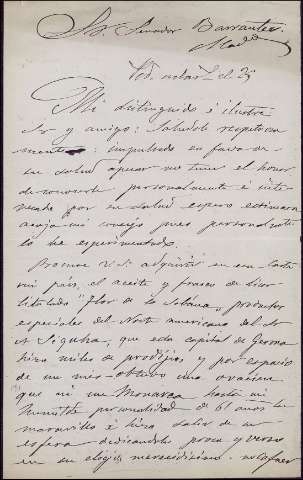 Sr. Senador Barrantes
Madd
Mi distinguido é ilustre
Sr y amigo: Saludole respetuosa
mente: impulsado en favor de
su salud apesar no tener el honor
de conocerle personalmente é inte
resado por su salud espero estimara
acoja mi consejo pues personalmente
lo he esperimentado.
Procure V.S. adquirir en esa Corte
mi pais, el aceite y frasco de licor
titulado "Flor de la Sabana" productos
especiales del Norte americano del Sr
A Sigukia, que esta capital de Gerona
hizo miles de prodijios y por espacio
de un mes obtuvo una ovacion
que ni un Monarca hasta mi
humilde personalidad de 61 años
maravilló é hizo salir de su
esfera dedicandole prosa y verso
en su elogio merecidisimo.